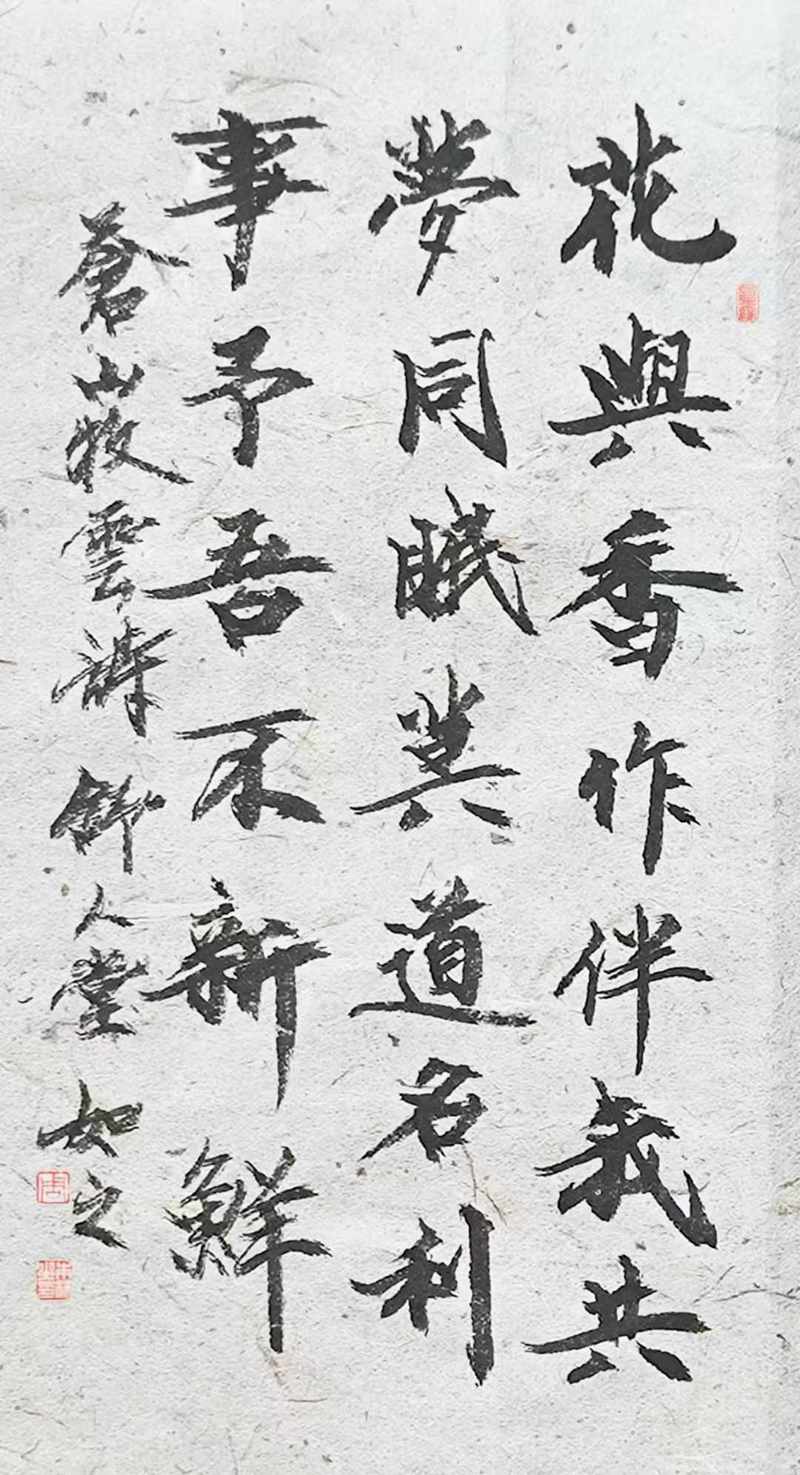 花與香作伴我共
夢同眠莫道名利
事予吾不新鮮
蒼山牧雲詩 人堂 如之